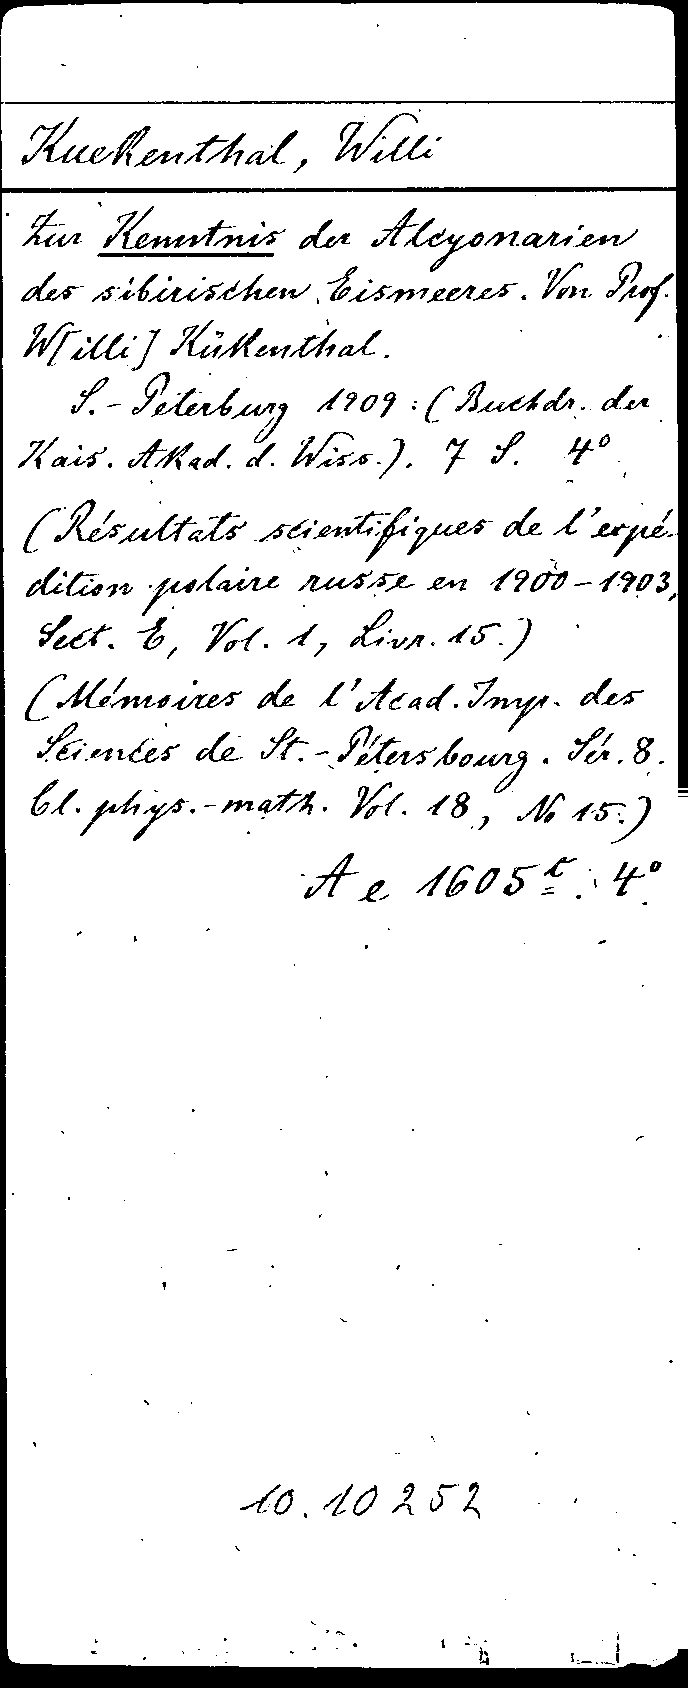 Kuekenthal, Willi
Zur Kenntnis der Alcyonarien
des sibirischen Eismeeres. Von Prof.
W[illi] Kükenthal.
S.-Peterburg 1909: (Buchdr. der
Kais. Akad. d. Wiss.). 7 S. 4°
(Résultats scientifiques de l'expé-
dition polaire russe en 1900-1903,
Sect. E, Vol. 1, Livr. 15.)
(Mémoires de l'Acad. Imp. des
Sciences de St.-Pétersbourg. Sér. 8.
Cl. phys.-math. Vol. 18, No 15.)
A e 1605 4°
10.10252